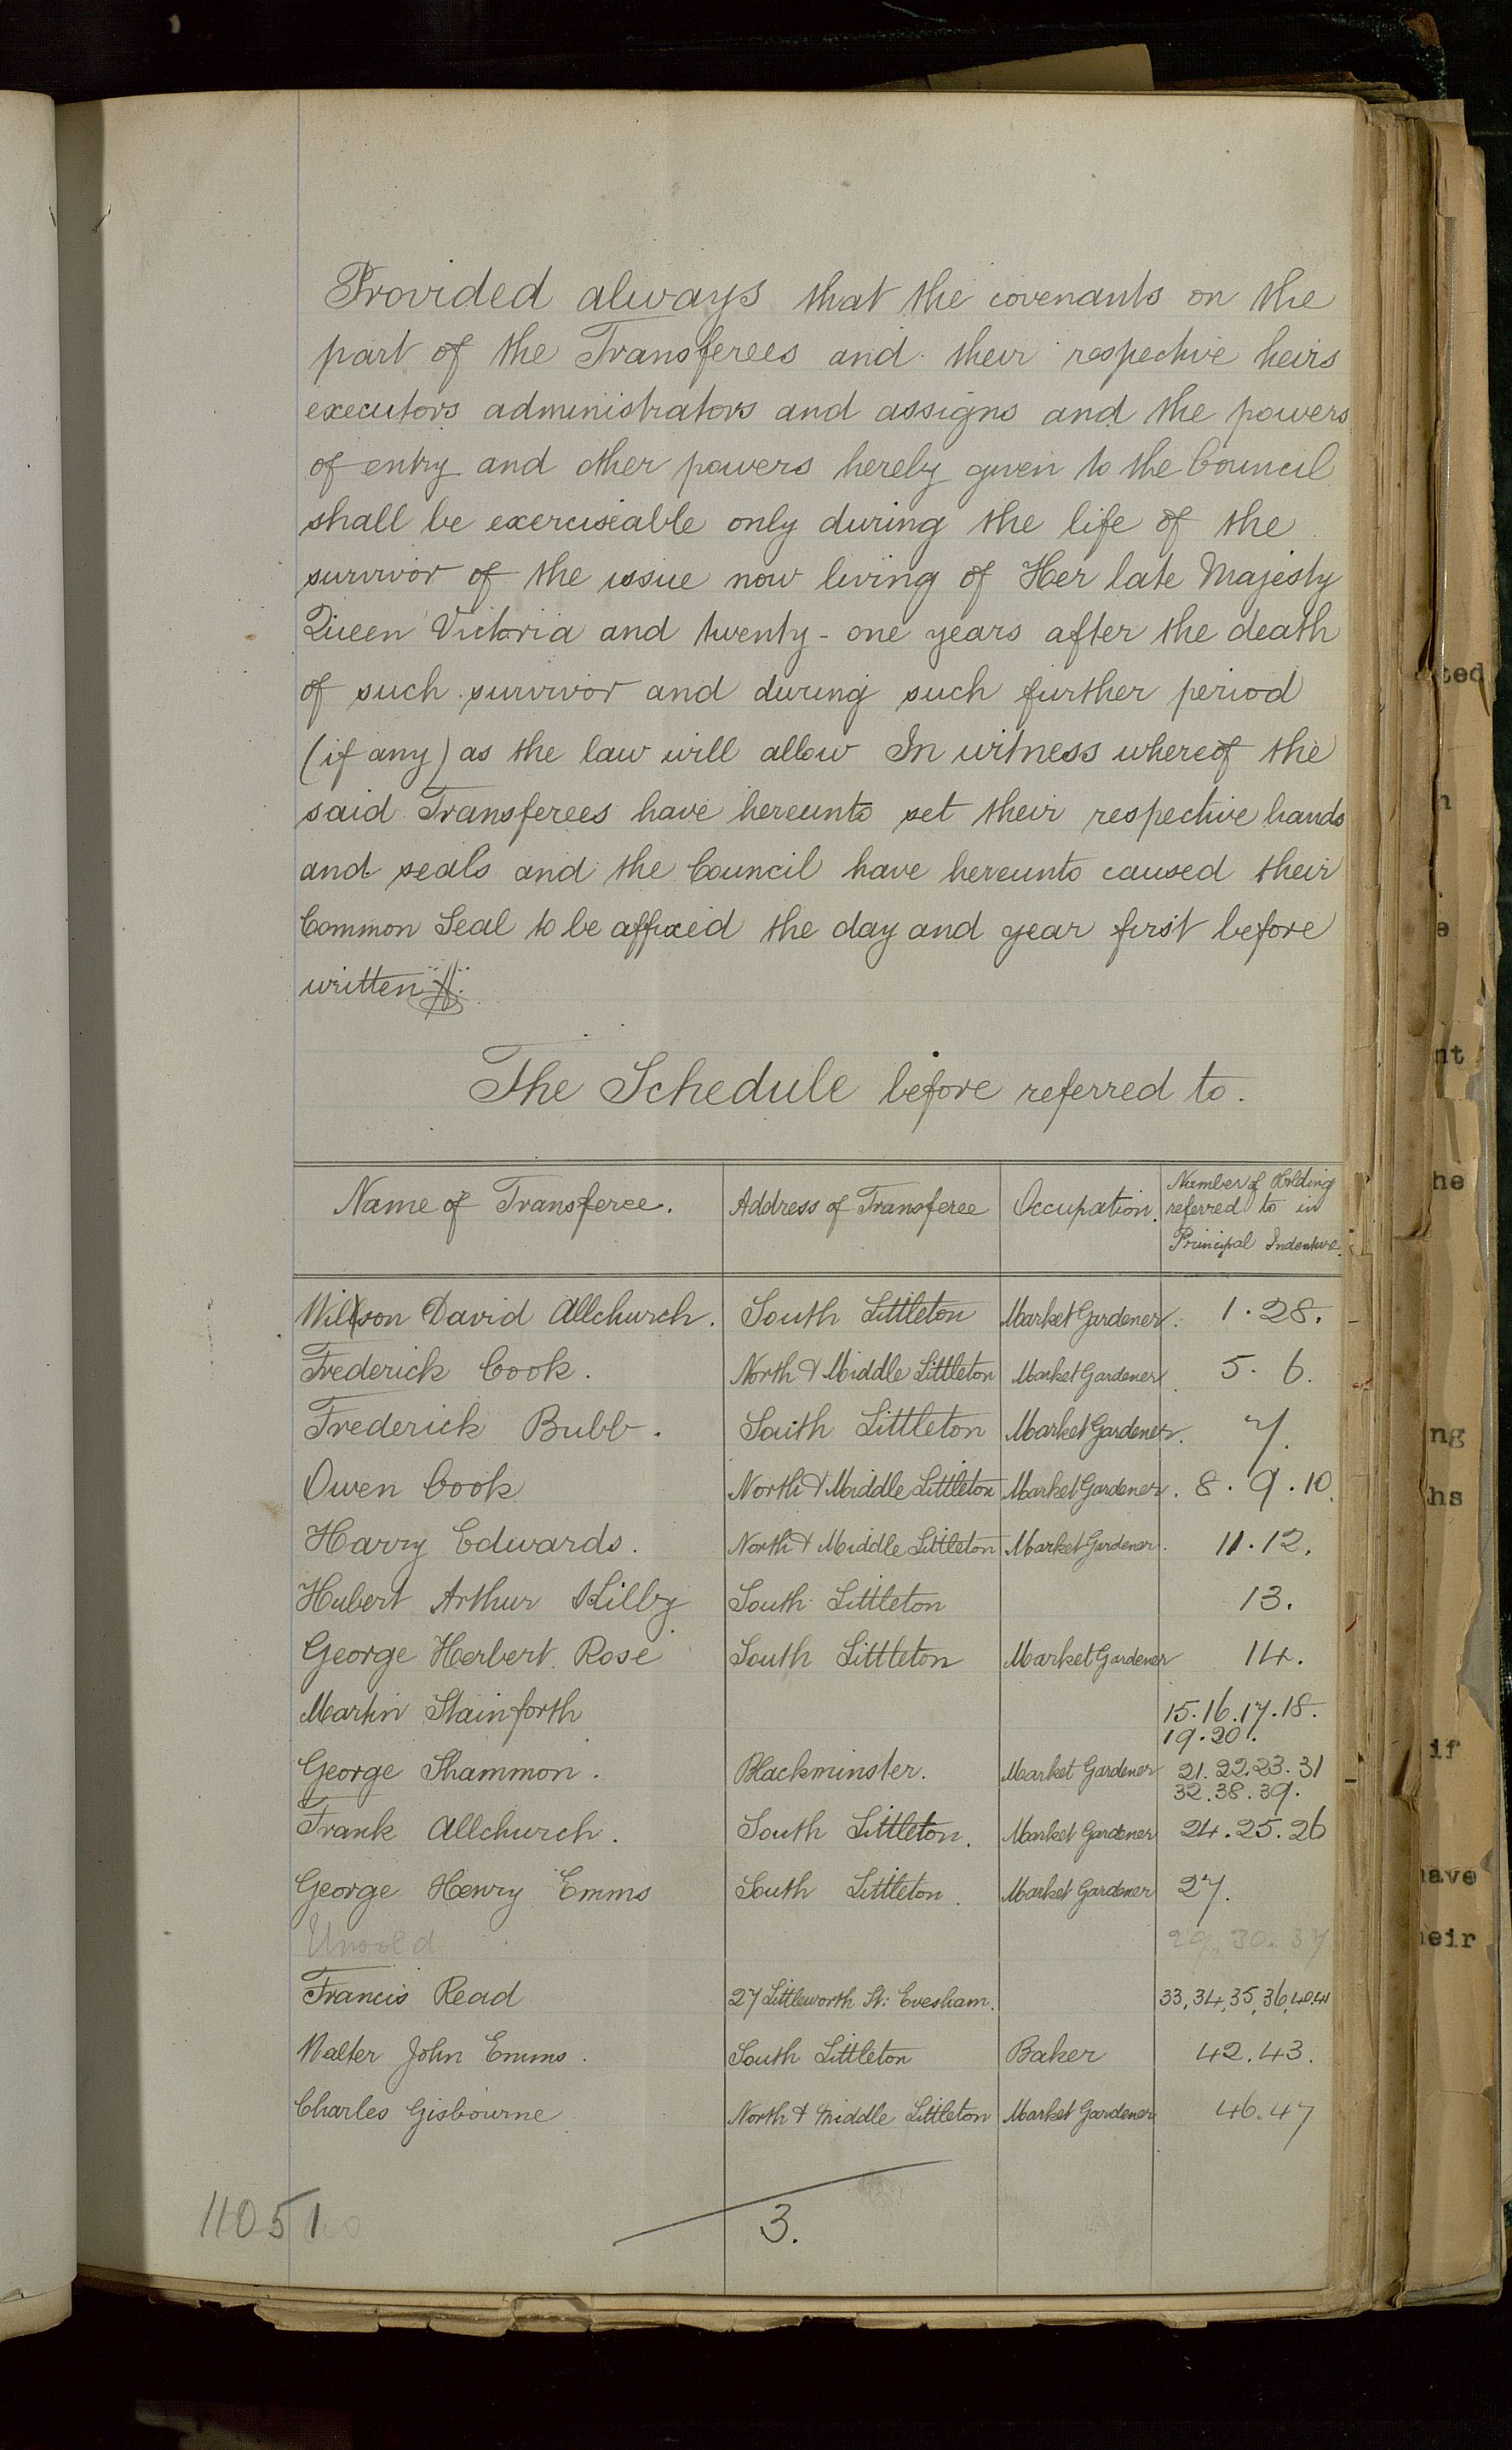 Provided always that the covenants on the
part of the Transferees and their respective heirs
executors administrators and assigns and the powers
of entry and other powers hereby given to the Council
shall be exerciseable only during the life of the
survivor of the issue now living of Her late Majesty
Queen Victoria and twenty-one years after the death
of such survivor and during such further period
(if any) as the law will allow In witness whereof the
said Transferees have hereunto set their respective hands
and seals and the Council have hereunto caused their
Common Seal to be affixed the day and year first before
written
The Schedule before referred to.
Name of Transferee. Address of Transferee Occupation. Number of Holding referred to in Principal Indenture.
Wilson David Allchurch. South Littleton Market Gardener. 1.28.
Frederick Cook. North & Middle Littleton Market Gardener 5.6.
Frederick Bubb. South Littleton Market Gardener. 7.
Owen Cook North & Middle Littleton Market Gardener. 8.9.10.
Harry Edwards. North & Middle Littleton Market Gardener. 11.12.
Hubert Arthur Kilby South Littleton 13.
George Herbert Rose South Littleton Market Gardener 14.
Martin Stainforth 15.16.17.18.
19.20.
George Shammon. Blackminster. Market Gardener 21.22.23.31
32.38.39.
Frank Allchurch. South Littleton. Market Gardener 24.25.26
George Henry Emms South Littleton. Market Gardener 27.
Unsold 29.30.37
Francis Read 27 Littleworth St: Evesham. 33,34,35,36,40.41
Walter John Emms. South Littleton Baker 42.43.
Charles Gisbourne North & Middle Littleton Market Gardener 46.47
11051
3.
ted
h
e
nt
he
ng
hs
if
have
heir